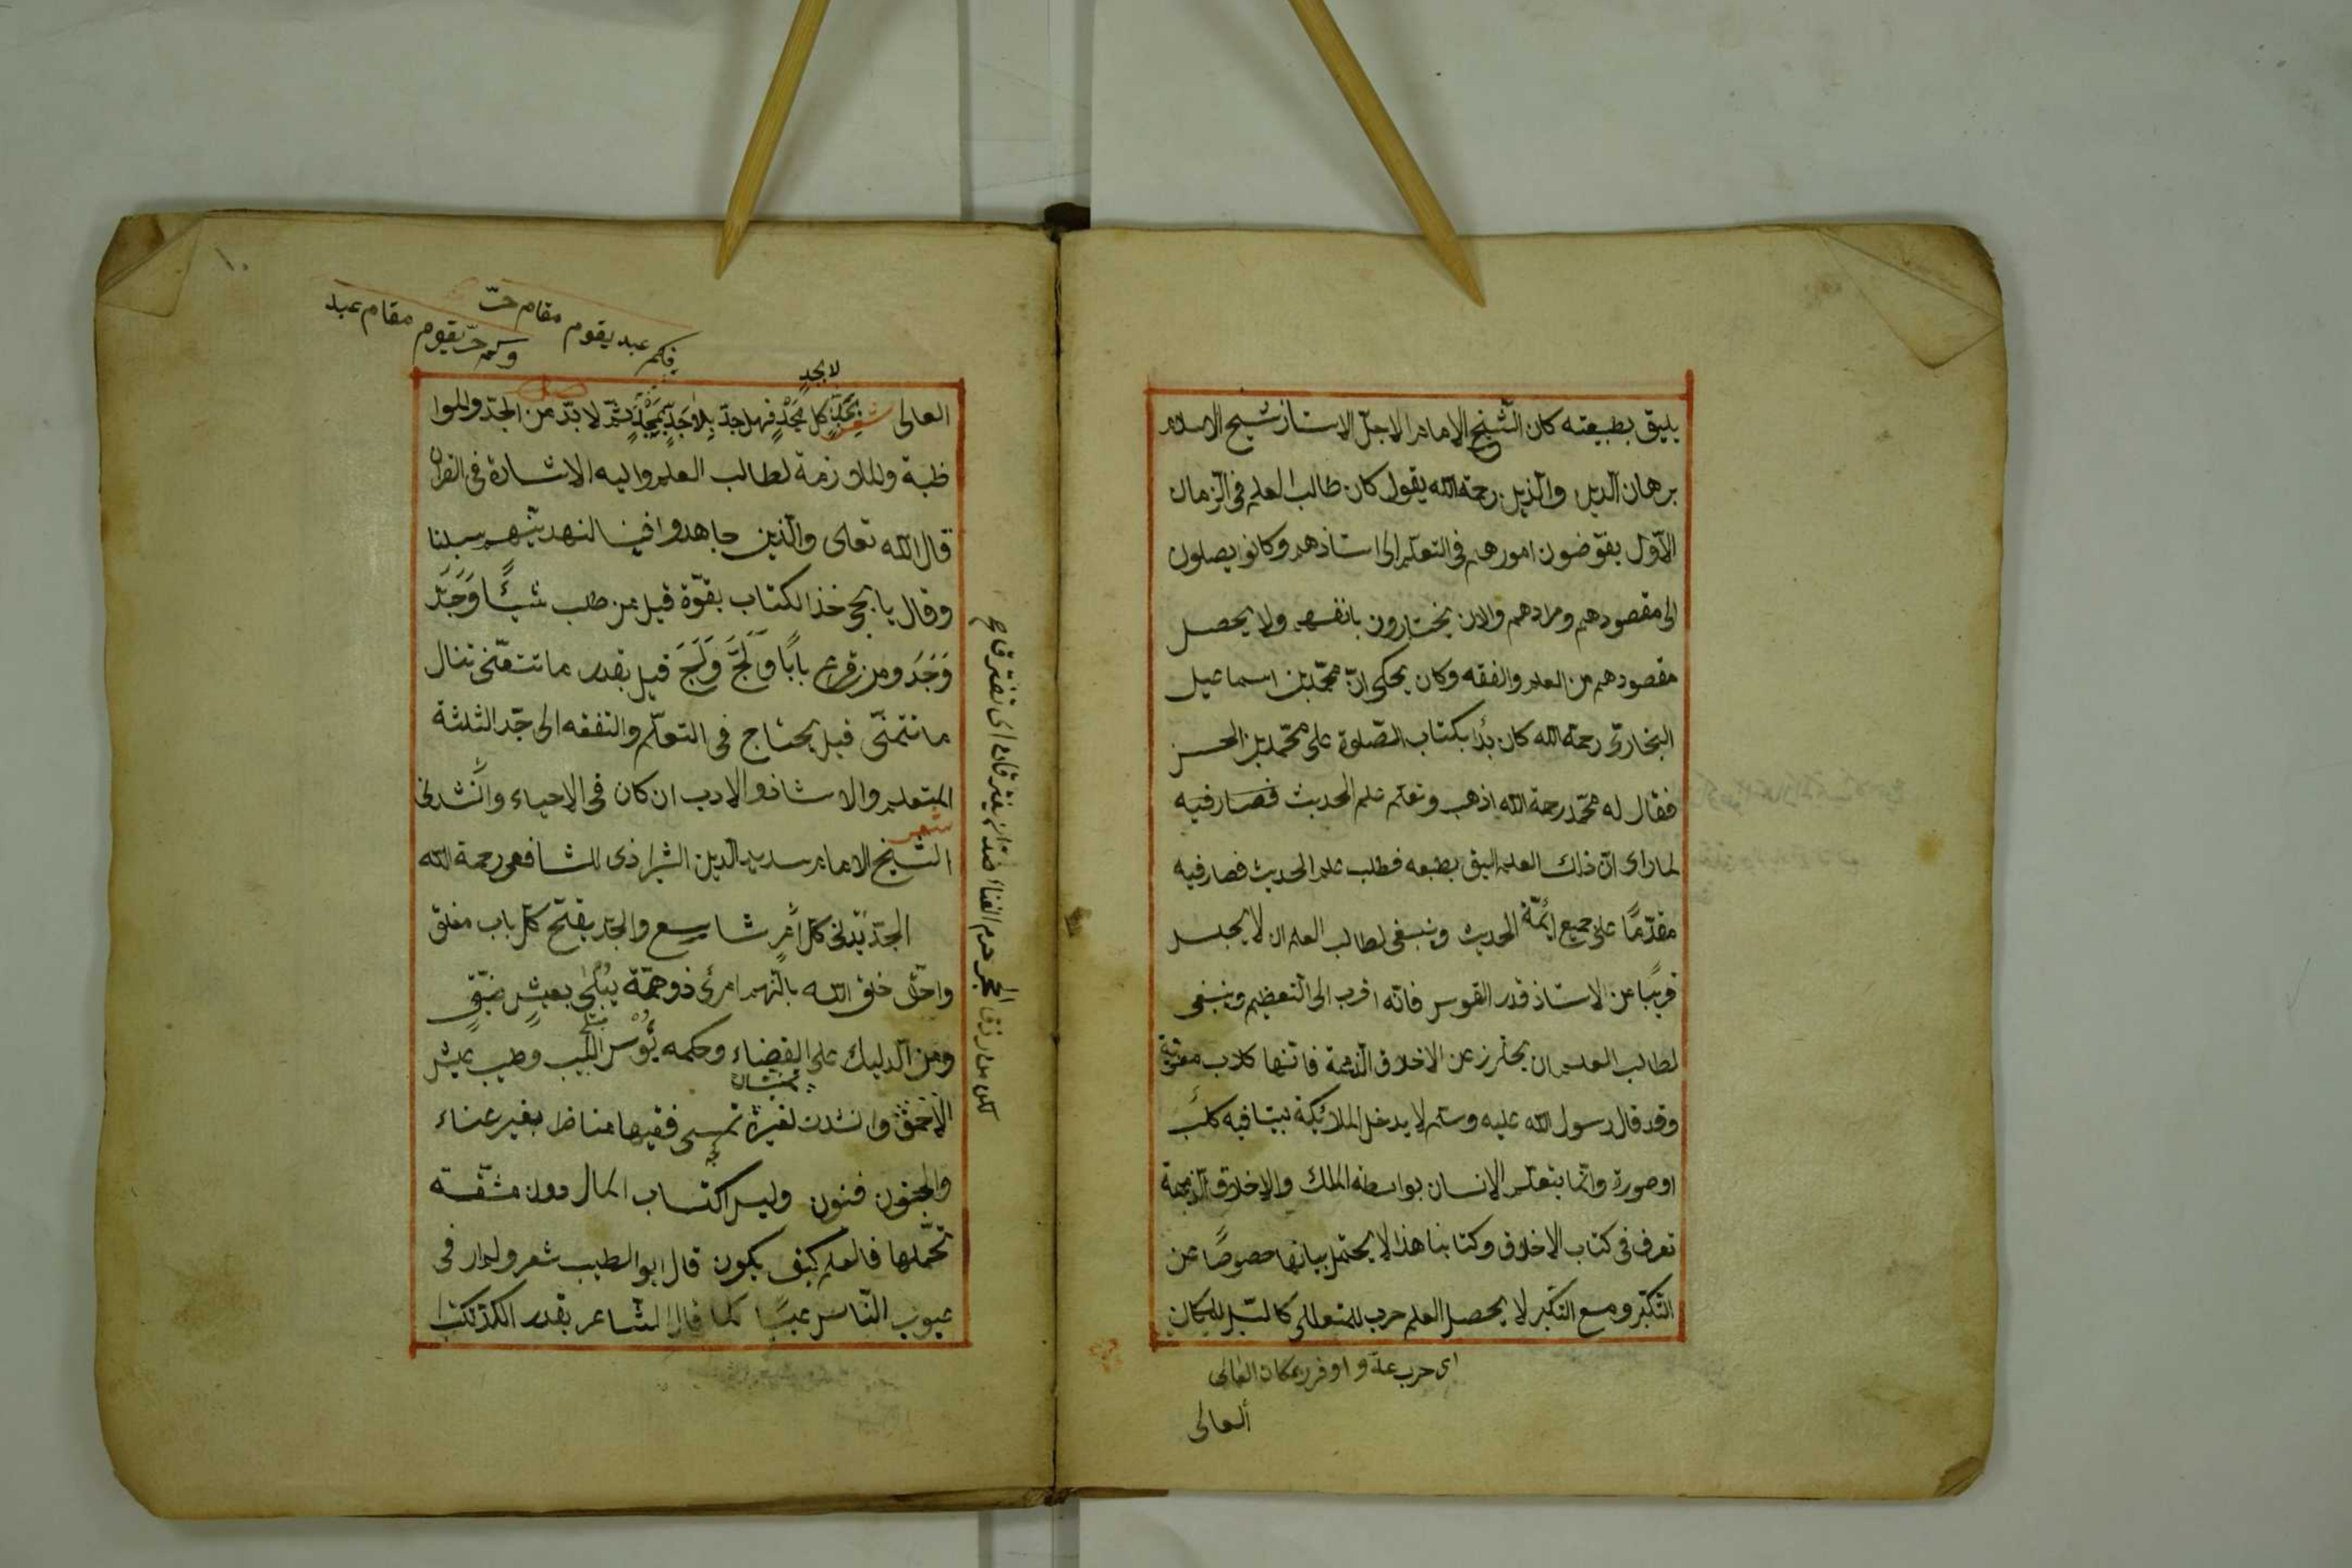 يليق بطبيعته كان الشّيخ الامام الاجلّ الاستاذ شيخ الاسلام
برهان الدين والدين رحمة الله يقول كان طالب العلم فى الزّمان
الاوّل يفوّضون امورهم فى التعلّم الى استاذهم وكانوا يصلون
الى مقصودهم ومرادهم والان يختارون بانفسهم ولا يحصل
مقصودهم من العلم والفقه وكان يحكى انّ محمّد بن اسماعيل
البخارىّ رحمة الله كان بدأ بكتاب الصّلوة على محمّد بن الحسن
فقال له محمّد رحمة الله اذهب وتعلّم علم الحديث فصار فيه
لما راى انّ ذلك العلم اليق بطبعه فطلب علم الحديث فصار فيه
مقدّمًا على جميع ائمّة الحديث وينبغى لطالب العلم ان لا يجلس
قريبًا من الاستاذ قدر القوس فانّه اقرب الى التعظيم وينبغى
لطالب العلم ان يحترز عن الاخلاق الذميمة فانّها كلاب معنوية
وقد قال رسول الله عليه وسلم لا يدخل الملائكة بيتا فيه كلب
او صورة وانّما يتعلّم الانسان بواسطة الملك والاخلاق الذميمة
تعرف فى كتاب الاخلاق وكتابنا هذا لا يحتمل بيانها خصوصًا عن
التّكبّر ومع التكبّر لا يحصل العلم حرب للمتعالى كالسّيل للمكان
اى حرب علة و مكان العالى
ألعالى
فكم عبد يقوم مقام حرّ
وكم حرّ يقوم مقام عبد
لا بجدٍ
العالى شعر بجدٍّ كل مجدٍ فهل جدّ بلا جدٍّ بمجدٍ ثمّ لا بدّ من الجدّ والموا
ظبة والملازمة لطالب العلم واليه الاشارة فى القران
قال الله تعالى والّذين جاهدوا فينا لنهدينّهم سبلنا
وقال يا يحيى خذ الكتاب بقوّة قيل من طلب شيئًا وَجَدَّ
وَجَدَ ومن قرع بابًا وَلَجَّ وَلَجَ قيل بقدر ما تتعنّى تنال
ما تتمنّى قيل يحتاج فى التعلّم والتفقه الى جدّ الثلثة
المتعلّم والاستاذ والاب ان كان فى الاحياء وانشدنى
شعر
الشّيخ الامام سديد الدين الشيرازى للشافعى رحمة الله
الجدّ يدنى كل امرٍ شاسع والجدّ يفتح كلّ باب مغلق
واحقّ خلق الله بالهم امرئ ذو همّة يبلى بعيشٍ ضيّقٍ
ومن الدليل على القضاء وحكمه بُؤْس اللبيب وطيب عيش
الاحمق وانشدت لغيره تمسى فقيها مناظرا بغير عناء
والجنون فنون وليس اكتساب المال دون مشقّة
تحمّلها فالعلم كيف يكون قال ابو الطيب شعر ولم ار فى
عيوب النّاس عيبًا كما قال الشّاعر بقدر الكدّ تكتسب